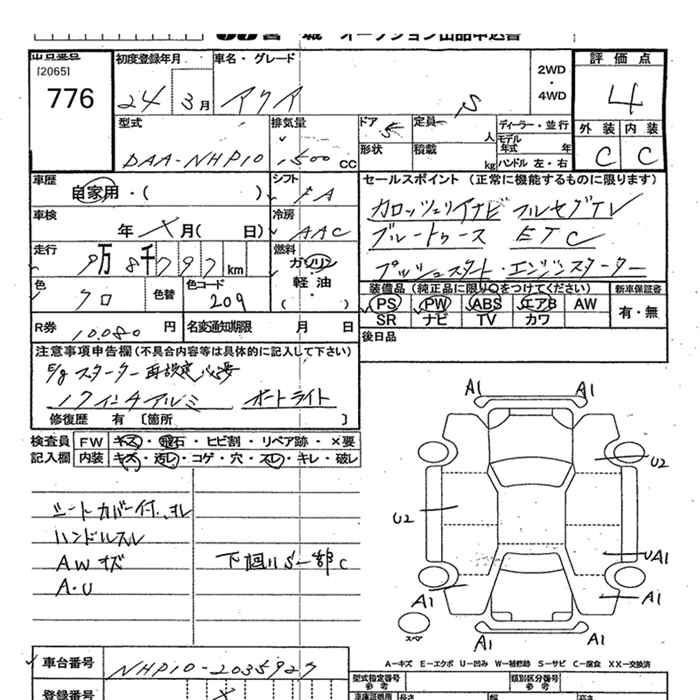 オークション出品申込書
出品番号
[2065]
776
初度登録年月
24年 3月
車名・グレード
アクア
S
2WD
・
4WD
評価点
4
外装 内装
C C
型式
DAA-NHP10
排気量
1500 CC
ドア
5
定員
人
形状
積載
kg
ディーラー・並行
モデル年式 年
ハンドル 左・右
車歴
自家用・( )
シフト
FA
車検
年 月( 日)
冷房
AAC
走行
9万8千797km
燃料
ガソリン
・
軽油
・
( )
色
クロ
色替
色コード
209
R券
10080円
名変通知期限 月 日
セールスポイント (正常に機能するものに限ります)
カロッツェリアナビ フルセグTV
ブルートゥース ETC
プッシュスタート・エンジンスターター
装備品(純正品に限り○をつけてください)
PS PW ABS エアB AW
SR ナビ TV カワ
新車保証書
有・無
後日品
注意事項申告欄(不具合内容等は具体的に記入して下さい)
E/gスターター再設定必要
17インチアルミ オートライト
修復歴 有 〔箇所 〕
検査員記入欄
FW キズ・飛石・ヒビ割・リペア跡・×要
内装 キズ・汚レ・コゲ・穴・スレ・キレ・破レ
シートカバー付、ヨレ
ハンドルスレ
AWキズ
A・U
下廻りS 一部C
A1 A1
U2
U2
UA1
A1 A1
A1 A1
スペア
A-キズ E-エクボ U-凹み W-補修跡 S-サビ C-腐食 XX-交換済
車台番号
NHP10-2035927
登録番号
型式指定番号
参考
類別区分番号
参考
長さ 幅 高さ